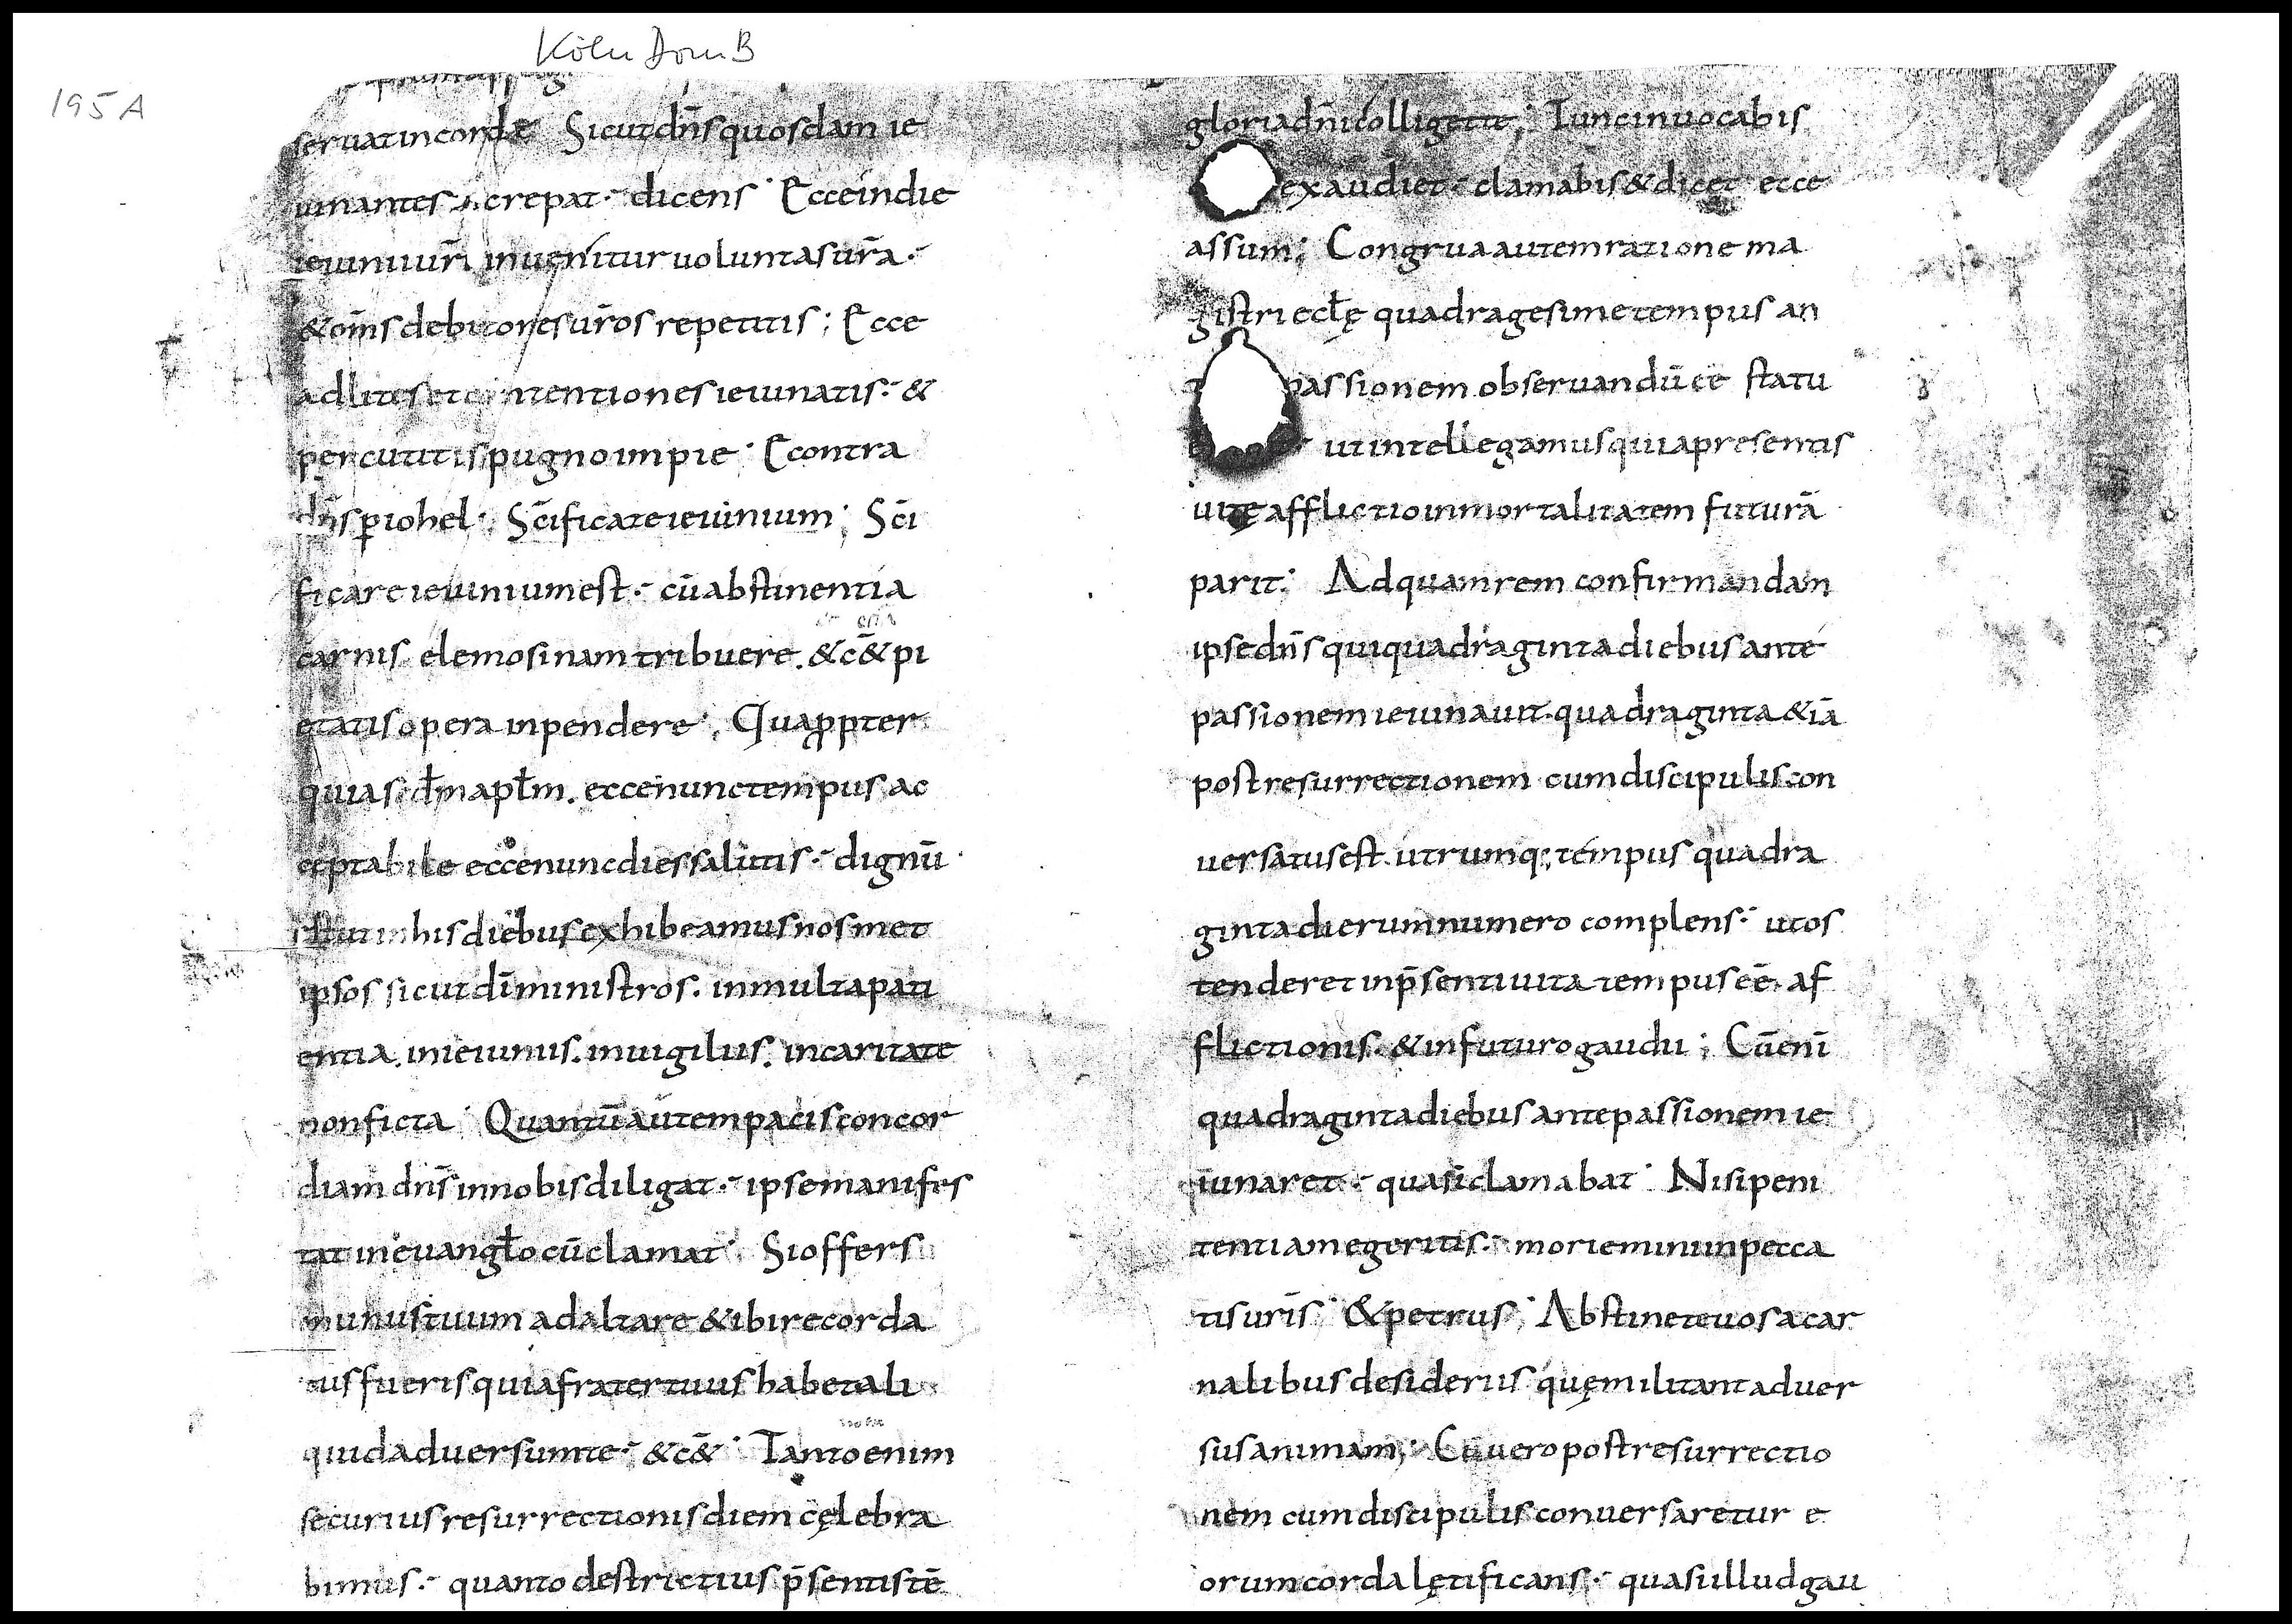 Köln Dom B
195 A
seruat in corde Sicut dn̄s quosdam ie
iunantes increpat· dicens Ecce in die
ieiunii ur̄i inuenitur uoluntas ur̄a·
& om̄s debitores ur̄os repetitis; Ecce
ad lites et contentiones ieiunatis· &
percutitis pugno impie· E contra
dn̄s ꝑ iohel·, Sc̄ificate ieiunium; Sc̄i
ficare ieiunium est· cū abstinentia
carnis elemosinam tribuere. & c̄& pi
etatis opera inpendere·, Quaꝓpter
quia scd̄m apl̄m. ecce nunc tempus ac
ceptabile ecce nunc dies salutis· dignū
est ut in his diebus exhibeamus nosmet
ipsos sicut dī ministros. in multa pati
entia. in ieiuniis. in uigiliis. in caritate
non ficta· Quantū autem pacis concor
diam dn̄s in nobis diligat· ipse manifes
tat in euangl̄o cū clamat· Si offers
munus tuum ad altare & ibi recorda
tus fueris quia frater tuus habet ali
quid aduersum te· & c̄&· Tanto enim
securius resurrectionis diem cęlebra
bimus· quanto destrictius p̄sentis tē
gloria dn̄i colliget te; Tunc inuocabis
exaudiet· clamabis & dicet ecce
assum; Congrua autem ratione ma
gistri ecl̄ę quadragesime tempus an
passionem obseruandū eē statu
ut intellegamus quia presentis
uitę afflictio inmortalitatem futurā
parit· Ad quam rem confirmandam
ipse dn̄s qui quadraginta diebus ante
passionem ieiunauit. quadraginta & iā
post resurrectionem cum discipulis con
uersatus est. utrumq; tempus quadra
ginta dierum numero complens· ut os
tenderet in p̄senti uita tempus eē af
flictionis. & in futuro gaudii; Cū enī
quadraginta diebus ante passionem ie
iunaret· quasi clamabat· Nisi peni
tentiam egeritis· moriemini in pecca
tis ur̄is· & petrus·, Abstinete uos a car
nalibus desideriis quę militant aduer
sus animam; Cū uero post resurrectio
nem cum discipulis conuersaretur e
orum corda lętificans· quasi illud gau